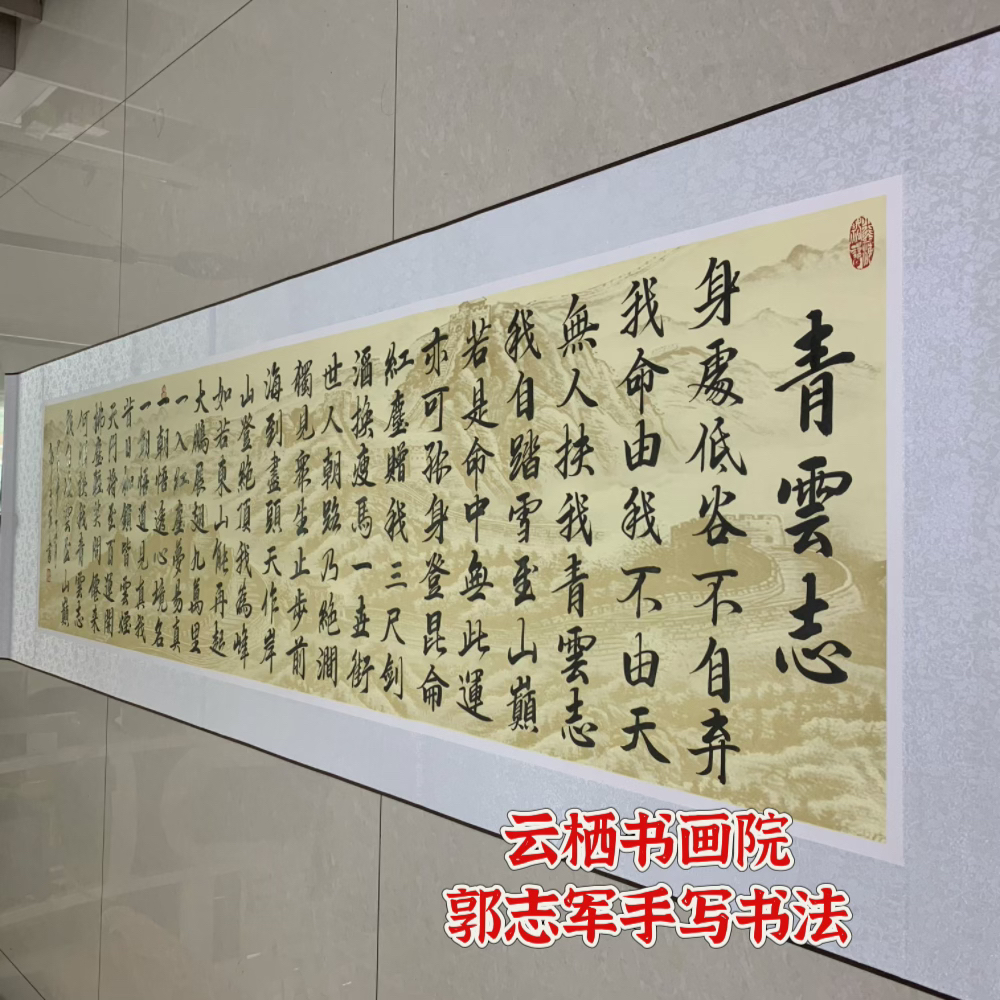 青雲志
身處低谷不自弃
我命由我不由天
無人扶我青雲志
我自踏雪至山巔
若是命中無此運
亦可孤身登昆侖
紅塵贈我三尺剑
酒換瘦馬一街
世人朝路乃絶澗
獨見衆生止步前
海到盡頭天作岸
山登絶頂我為峰
如若東山能再起
大鵬展翅九萬里
一入紅塵夢易真
一朝悟透心境名
一朝悟道見真我
昔日枷鎖皆雲煙
天門
何扶我青雲志
山巔
云栖书画院
郭志军手写书法